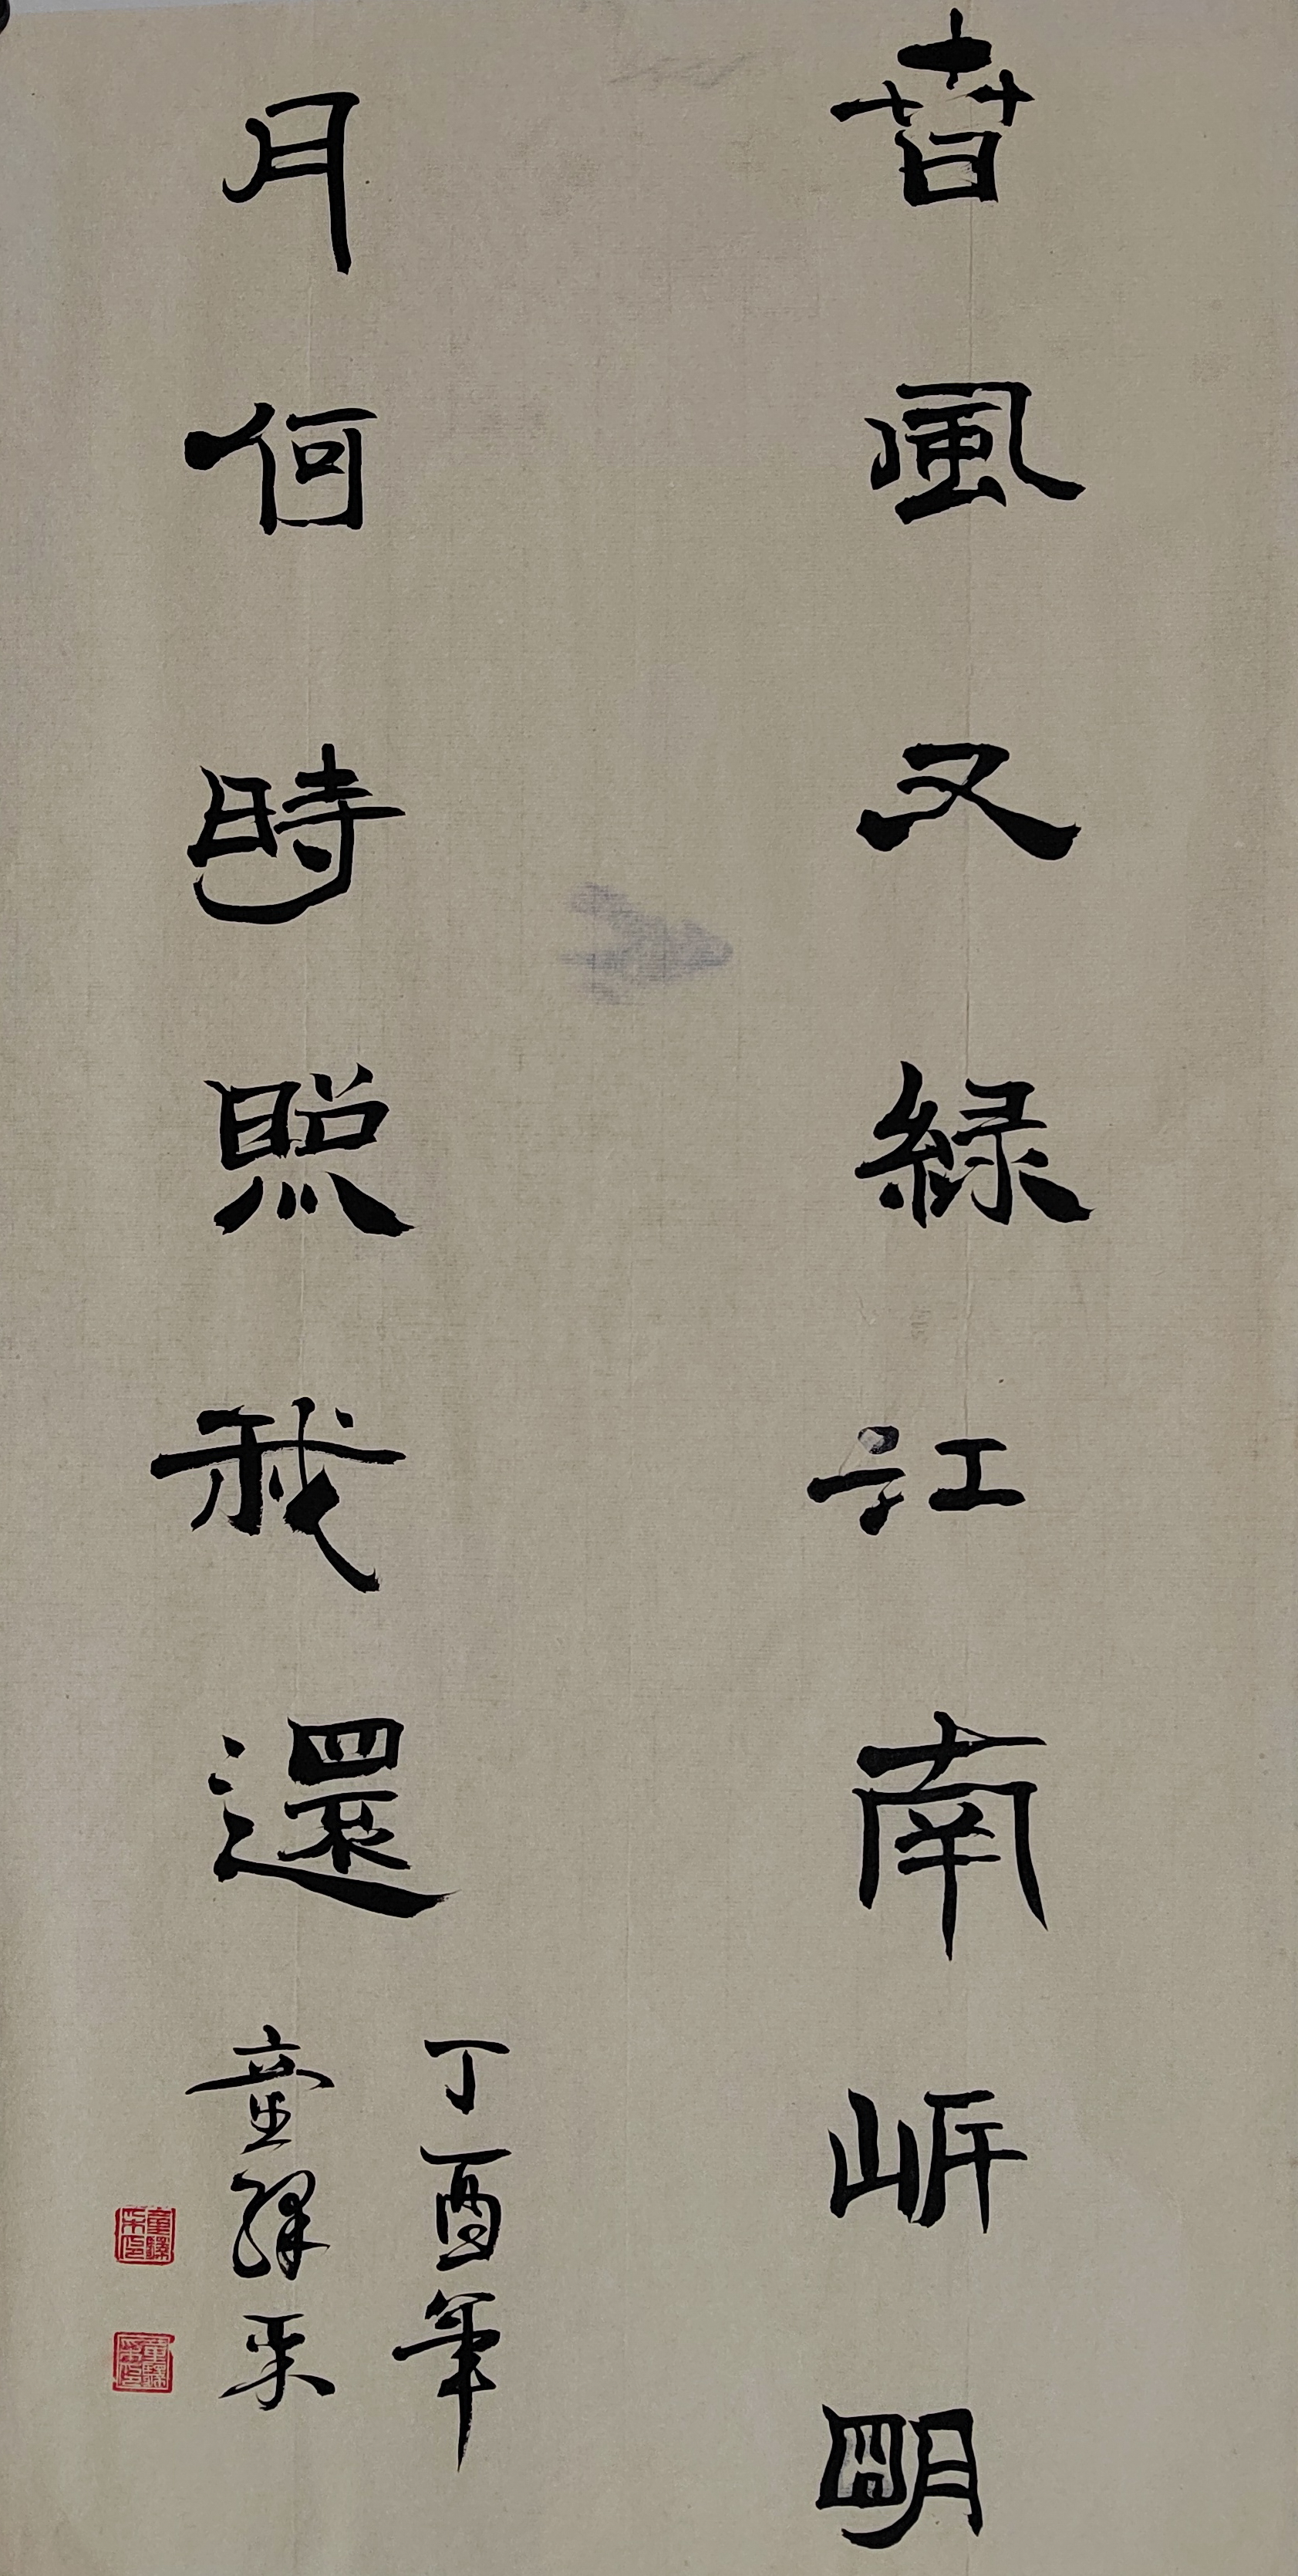 春風又緑江南岍明
月何時照我還
丁酉年
童繹采